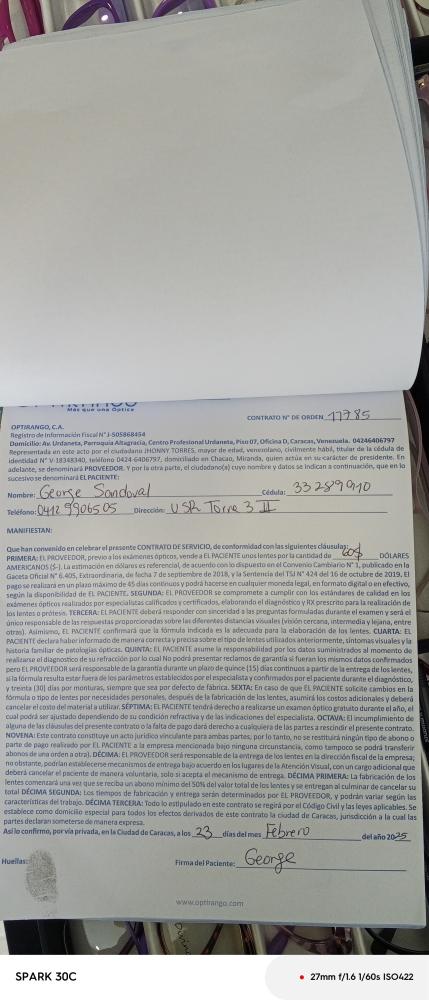 Más que una Óptica
CONTRATO N° DE ORDEN 17785
OPTIRANGO, C.A.
Registro de Información Fiscal N° J-505868454
Domicilio: Av. Urdaneta, Parroquia Altagracia, Centro Profesional Urdaneta, Piso 07, Oficina D, Caracas, Venezuela. 04246406797
Representada en este acto por el ciudadano JHONNY TORRES, mayor de edad, venezolano, civilmente hábil, titular de la cédula de
identidad N° V-18348340, teléfono 0424-6406797, domiciliado en Chacao, Miranda, quien actúa en su carácter de presidente. En
adelante, se denominará PROVEEDOR. Y por la parte, el ciudadano(a) cuyo nombre y datos se indican a continuación, que en lo
sucesivo se denominará EL PACIENTE:
Nombre: George Sandoval Cédula: 33289910
Teléfono: 0412 9906505 Dirección: USR Torre 3 II
MANIFIESTAN:
Que han convenido en celebrar el presente CONTRATO DE SERVICIO, de conformidad con las siguientes cláusulas:
PRIMERA: EL PROVEEDOR, previo a los exámenes ópticos, vende a EL PACIENTE unos lentes por la cantidad de 60$ DÓLARES
AMERICANOS ($-). La estimación en dólares es referencial, de acuerdo con lo dispuesto en el Convenio Cambiario N° 1, publicado en la
Gaceta Oficial N° 6.405, Extraordinaria, de fecha 7 de septiembre de 2018, y la Sentencia del TSJ N° 424 del 16 de octubre de 2019. El
pago se realizará en un plazo máximo de 45 días continuos y podrá hacerse en cualquier moneda legal, en formato digital o en efectivo,
según la disponibilidad de EL PACIENTE. SEGUNDA: EL PROVEEDOR se compromete a cumplir con los estándares de calidad en los
exámenes ópticos realizados por especialistas calificados y certificados, elaborando el diagnóstico y RX prescrito para la realización de
los lentes o prótesis. TERCERA: EL PACIENTE deberá responder con sinceridad a las preguntas formuladas durante el examen y será el
único responsable de las respuestas proporcionadas sobre las diferentes distancias visuales (visión cercana, intermedia y lejana, entre
otras). Asimismo, EL PACIENTE confirmará que la fórmula indicada es la adecuada para la elaboración de los lentes. CUARTA: EL
PACIENTE declara haber informado de manera correcta y precisa sobre el tipo de lentes utilizados anteriormente, síntomas visuales y
historia familiar de patologías ópticas. QUINTA: EL PACIENTE asume la responsabilidad por los datos suministrados al momento de
realizarse el diagnostico de su refracción por lo cual No podrá presentar reclamos de garantía si fueran los mismos datos confirmados
pero EL PROVEEDOR será responsable de la garantía durante un plazo de quince (15) días continuos a partir de la entrega de los lentes,
si la fórmula resulta estar fuera de los parámetros establecidos por el especialista y confirmados por el paciente durante el diagnóstico,
y treinta (30) días por monturas, siempre que sea por defecto de fábrica. SEXTA: En caso de que EL PACIENTE solicite cambios en la
fórmula o tipo de lentes por necesidades personales, después de la fabricación de los lentes, asumirá los costos adicionales y deberá
cancelar el costo del material a utilizar. SÉPTIMA: EL PACIENTE tendrá derecho a realizarse un examen óptico gratuito durante el año, el
cual podrá ser ajustado dependiendo de su condición refractiva y de las indicaciones del especialista. OCTAVA: El incumplimiento de
alguna de las cláusulas del presente contrato o la falta de pago dará derecho a cualquiera de las partes a rescindir el presente contrato.
NOVENA: Este contrato constituye un acto jurídico vinculante para ambas partes; por lo tanto, no se restituirá ningún tipo de abono o
parte de pago realizado por EL PACIENTE a la empresa mencionada bajo ninguna circunstancia, como tampoco se podrá transferir
abonos de una orden a otra). DÉCIMA: EL PROVEEDOR será responsable de la entrega de los lentes en la dirección fiscal de la empresa;
no obstante, podrían establecerse mecanismos de entrega bajo acuerdo en los lugares de la Atención Visual, con un cargo adicional que
deberá cancelar el paciente de manera voluntaria, solo si acepta el mecanismo de entrega. DÉCIMA PRIMERA: La fabricación de los
lentes comenzará una vez que se reciba un abono mínimo del 50% del valor total de los lentes y se entregan al culminar de cancelar su
total DÉCIMA SEGUNDA: Los tiempos de fabricación y entrega serán determinados por EL PROVEEDOR, y podrán variar según las
características del trabajo. DÉCIMA TERCERA: Todo lo estipulado en este contrato se regirá por el Código Civil y las leyes aplicables. Se
establece como domicilio especial para todos los efectos derivados de este contrato la ciudad de Caracas, jurisdicción a la cual las
partes declaran someterse de manera expresa.
Así lo confirmo, por vía privada, en la Ciudad de Caracas, a los 23 días del mes Febrero del año 2025
Huellas: Firma del Paciente: George
www.optirango.com
SPARK 30C
27mm f/1.6 1/60s ISO422